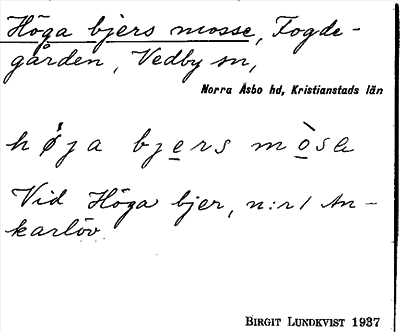 Höga bjers mosse, Fogde-
gården, Vedby sn,
Norra Åsbo hd, Kristianstads län
hø̀ja bjers mòsе
Vid Höga bjer, n:r 1 An-
karlöv.
BIRGIT LUNDKVIST 1937